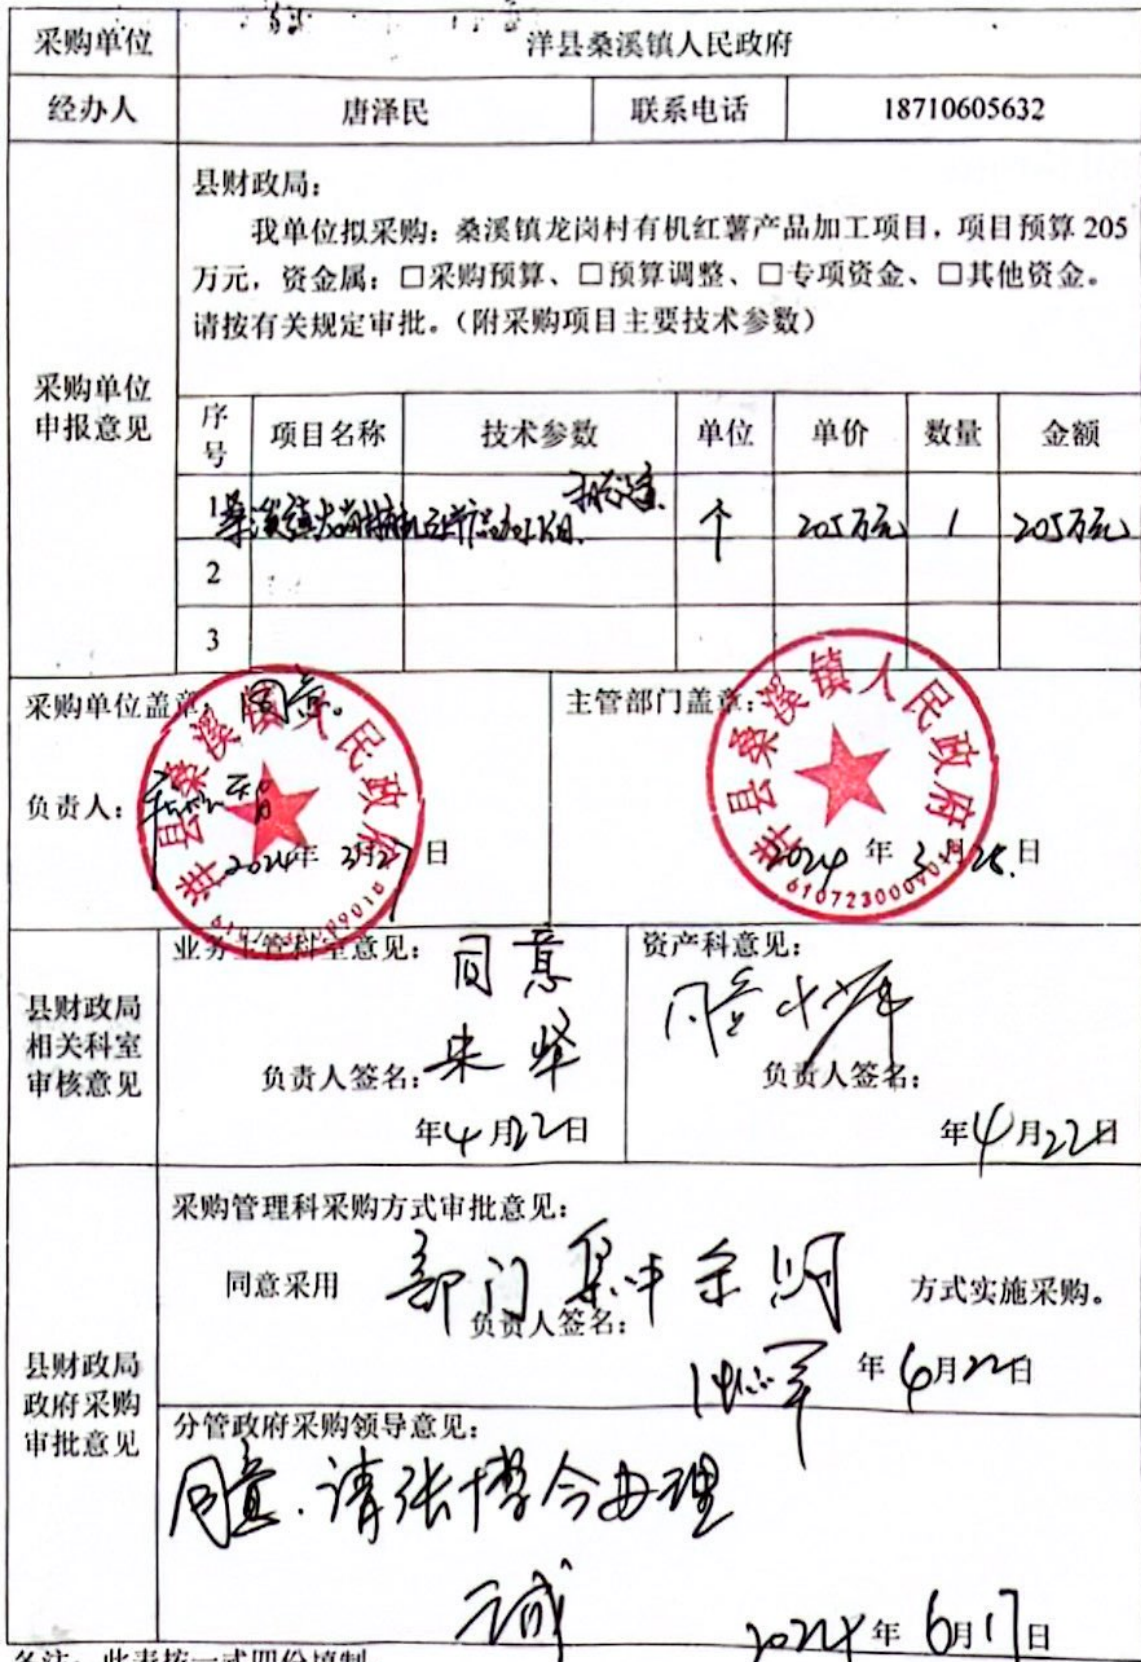 采购单位 洋县桑溪镇人民政府
经办人 唐泽民 联系电话 18710605632
县财政局：
我单位拟采购：桑溪镇龙岗村有机红薯产品加工项目，项目预算 205
万元，资金属：□采购预算、□预算调整、□专项资金、□其他资金。
请按有关规定审批。（附采购项目主要技术参数）
采购单位
申报意见
序号 项目名称 技术参数 单位 单价 数量 金额
1 桑溪镇龙岗村有机红薯产品加工项目 个 205万元 1 205万元
2
3
采购单位盖章： 同意。
负责人：
2024年 3月27日
洋县桑溪镇人民政府
主管部门盖章：
2024年 3月28日
洋县桑溪镇人民政府
县财政局
相关科室
审核意见
业务主管科室意见： 同意
负责人签名：
年4月22日
资产科意见： 同意
负责人签名：
年4月22日
县财政局
政府采购
审批意见
采购管理科采购方式审批意见：
同意采用 部门集中采购 方式实施采购。
负责人签名：
年6月22日
分管政府采购领导意见：
同意.请张博今办理
2024年 6月17日
备注：此表按一式四份填制